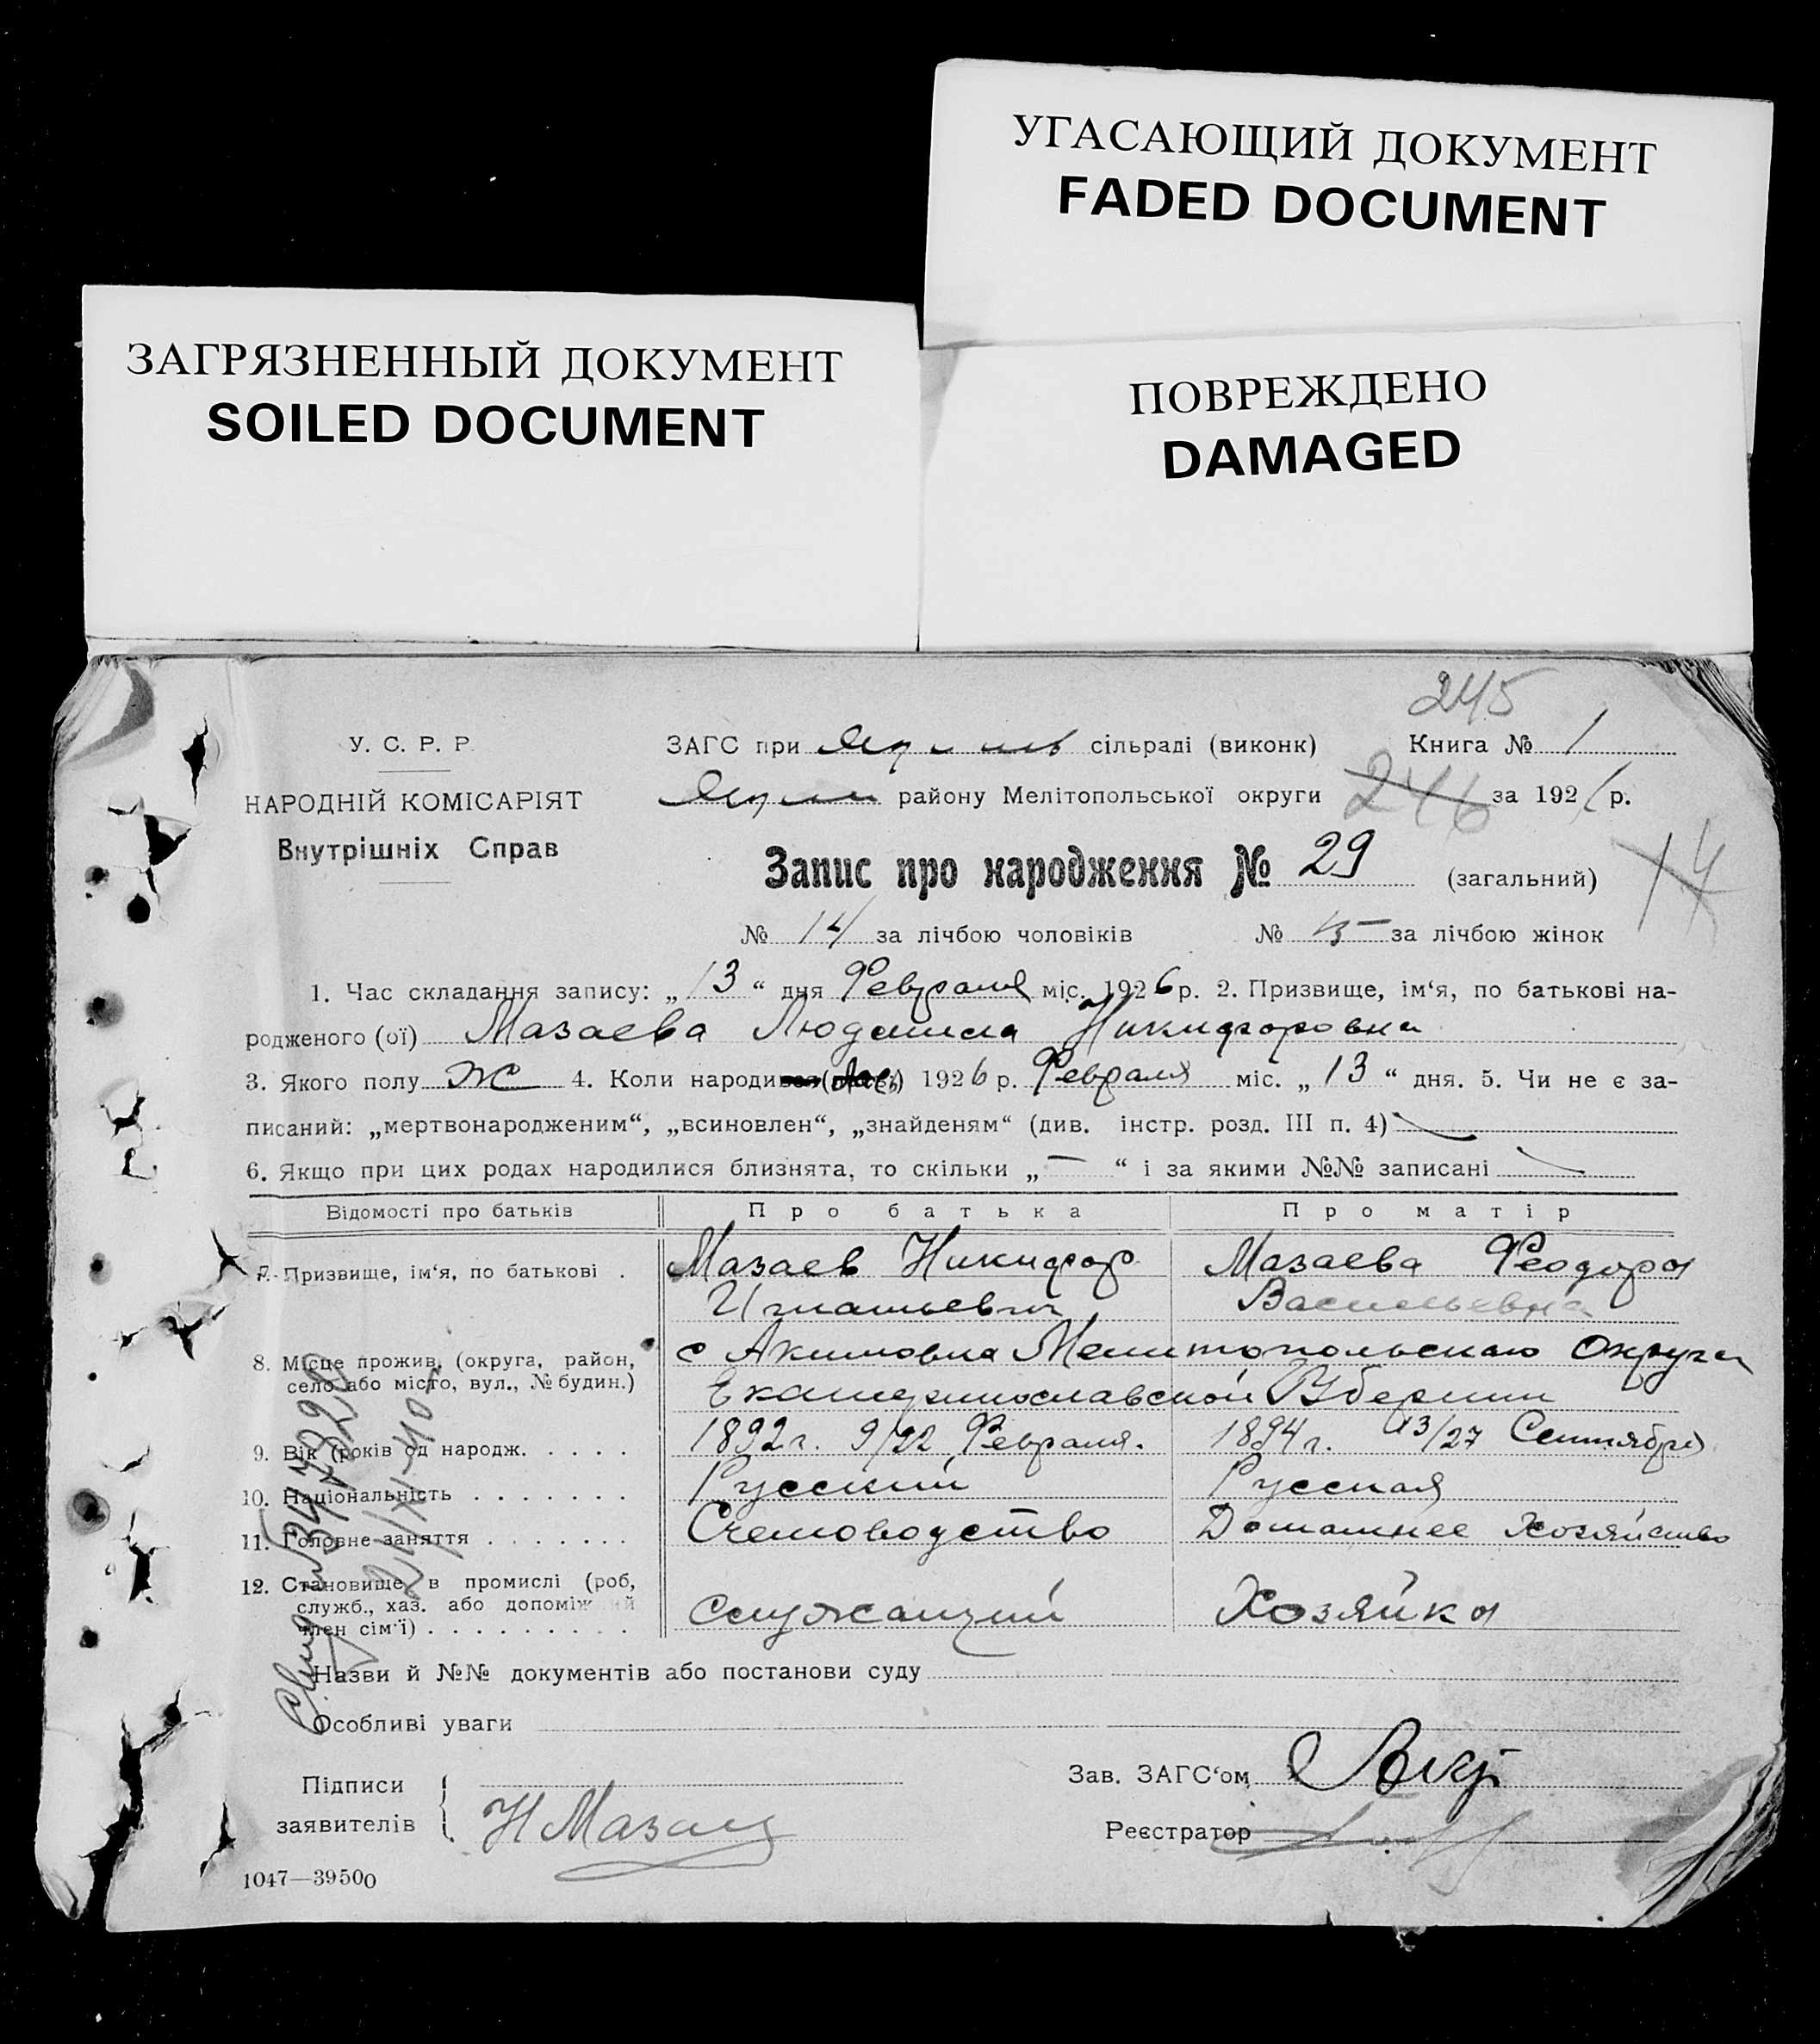 УГАСАЮЩИЙ ДОКУМЕНТ
FADED DOCUMENT
ЗАГРЯЗНЕННЫЙ ДОКУМЕНТ
SOILED DOCUMENT
ПОВРЕЖДЕНО
DAMAGED
245
У. С. Р. Р.
ЗАГС при сільраді (виконк) Книга № 1
НАРОДНІЙ КОМІСАРІЯТ
району Мелітопольської округи 246 за 192 р.
Внутрішніх Справ
Запис про народження № 29 (загальний)
14
№ 14 за лічбою чоловіків № 15 за лічбою жінок
1. Час складання запису: „ 13 “ дня Февраля міс. 1926 р. 2. Призвище, ім‘я, по батькові на-
родженого (ої) Мазаева Людмила Никифоровна
3. Якого полу Ж 4. Коли народи 1926 р. Февраля міс. „ 13 “ дня. 5. Чи не є за-
писаний: „мертвонародженим“, „всиновлен“, „знайденям“ (див. інстр. розд. III п. 4)
6. Якщо при цих родах народилися близнята, то скільки „ — “ і за якими №№ записані
Відомості про батьків Про батька Про матір
7. Призвище, ім‘я, по батькові . Мазаев Никифор Мазаева Феодора
Игнатьевич Васильевна
8. Місце прожив. (округа, район, с Акимовка Мелитопольскаю Округа
село або місто, вул., № будин.) Екатеринославской Губернии
9. Вік (років од народж. . . . . 1892 г. 9/22 Февраля. 1894 г. 13/27 Сентября
10. Національність . . . . . . . Русский Русская
11. Головне заняття . . . . . . . Счетоводство Домашнее Хозяйство
12. Становище в промислі (роб,
служб., хаз. або допоміжний Служащий Хозяйка
член сім‘ї) . . . . . . . . .
Назви й №№ документів або постанови суду
Особливі уваги
Підписи Зав. ЗАГС‘ом
заявителів Н Мазаев Реєстратор
1047—39500